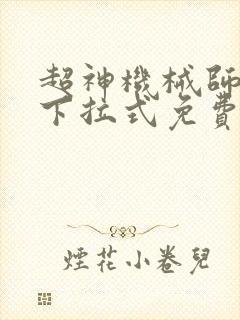 超神機械師
下拉式免費
煙花小卷兒